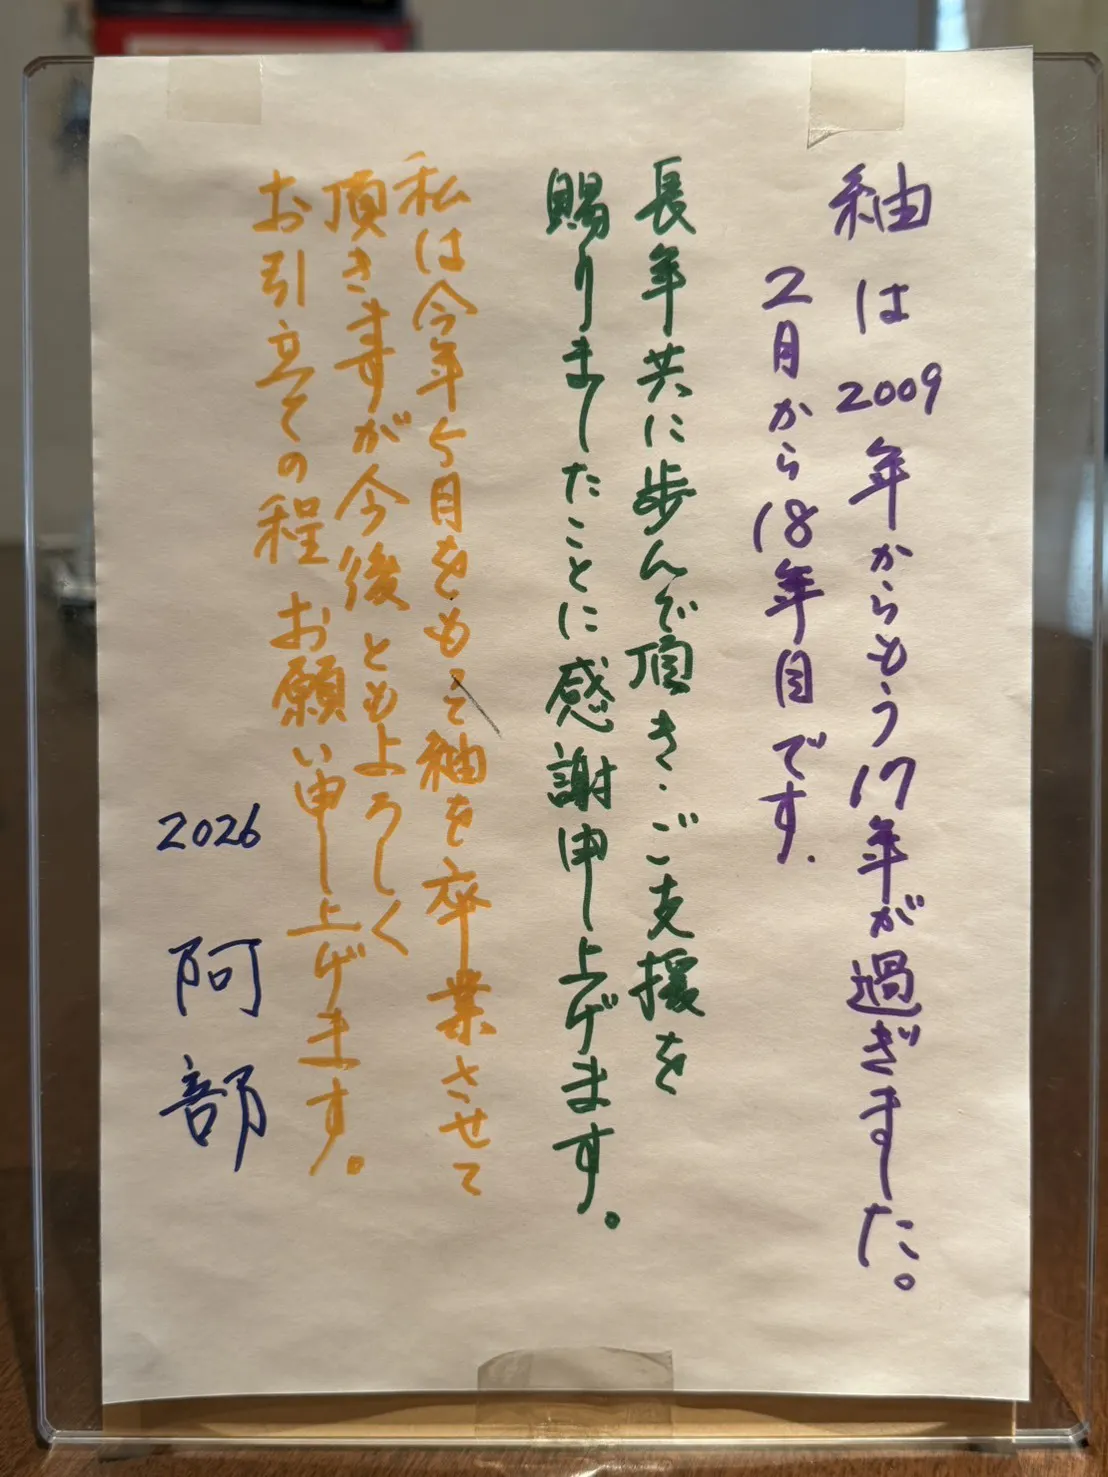 釉は2009年からもう17年が過ぎました。
2月から18年目です.
長年共に歩んで頂き.ご支援を
賜りましたことに感謝申し上げます。
私は今年5月をもって釉を卒業させて
頂きますが今後ともよろしく
お引立ての程お願い申し上げます。
2026 阿部